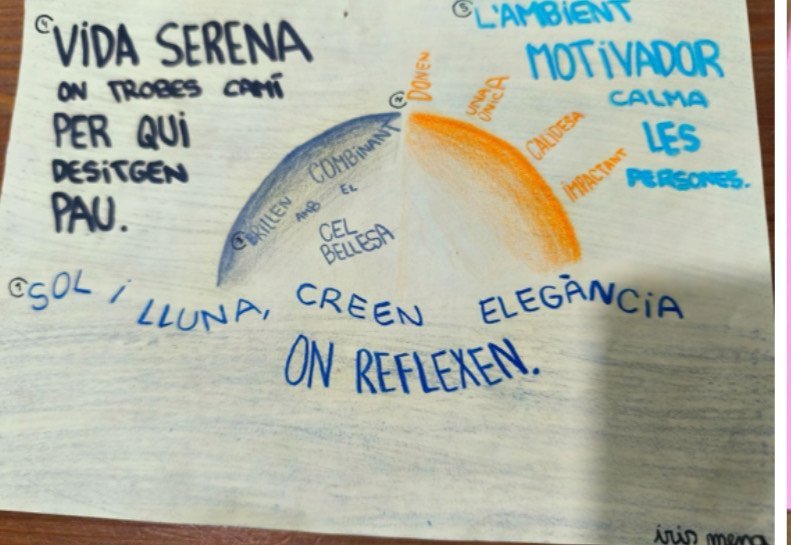 ④ VIDA SERENA
ON TROBES CAMÍ
PER QUI
DESITGEN
PAU.
⑤ L'AMBIENT
MOTIVADOR
CALMA
LES
PERSONES.
② DONEN
UNA
ÚNICA
CALIDESA
IMPACTANT
③ BRILLEN
AMB
EL
COMBINANT
CEL
BELLESA
① SOL I LLUNA, CREEN ELEGÀNCIA
ON REFLEXEN.
iris mena